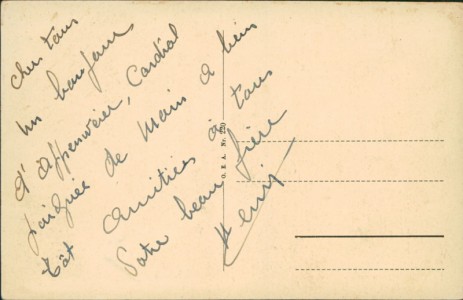 Cher tous
Un bonjour
d'Appenweier, Cordial
poignée de main a bien
tôt Amitiés à tous
Votre beau frère
Henri
G. E. A. Nr.